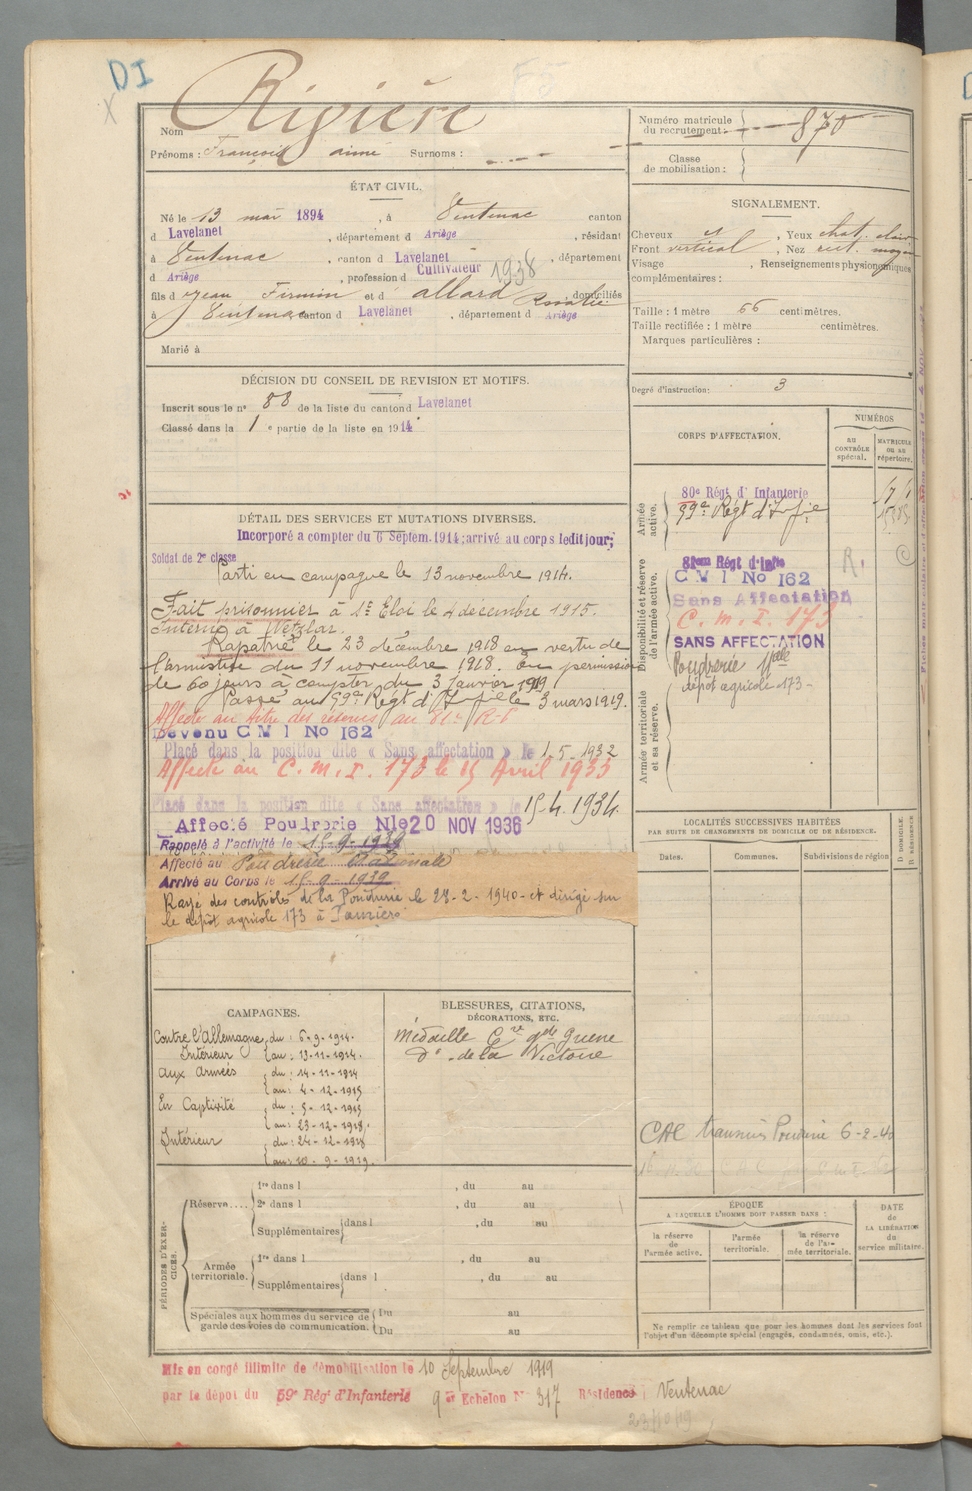 DI
Nom Rivière
Prénoms : François aimé Surnoms :
Numéro matricule du recrutement : 870
Classe de mobilisation :
ÉTAT CIVIL.
Né le 13 mai 1894, à Ventenac canton
d Lavelanet, département d Ariège, résidant
à Ventenac, canton d Lavelanet, département
d Ariège, profession d Cultivateur 1938
fils d Jean Firmin et d' allard Rosalie domiciliés
à Ventenac canton d Lavelanet, département d Ariège
Marié à
SIGNALEMENT.
Cheveux et, Yeux chat. clair
Front vertical, Nez rect. moyen
Visage, Renseignements physionomiques
complémentaires :
Taille : 1 mètre 66 centimètres.
Taille rectifiée : 1 mètre centimètres.
Marques particulières :
Degré d'instruction : 3
DÉCISION DU CONSEIL DE REVISION ET MOTIFS.
Inscrit sous le n° 88 de la liste du canton d Lavelanet
Classé dans la 1e partie de la liste en 1914
DÉTAIL DES SERVICES ET MUTATIONS DIVERSES.
Incorporé a compter du 6 Septem. 1914; arrivé au corps ledit jour;
Soldat de 2e classe
Parti en campagne le 13 novembre 1914.
Fait prisonnier à St Eloi le 4 décembre 1915.
Interné à Wetzlar.
Rapatrié le 23 décembre 1918 en vertu de
l'armistice du 11 novembre 1918. En permission
de 60 jours à compter du 3 Janvier 1919
Passé au 59e Régt d'Infie le 3 mars 1919.
Affecté au titre des réserves au 81e R.I.
Devenu C M I No 162
Placé dans la position dite « Sans affectation » le 1.5.1932
Affecté au C.M.I. 173 le 15 Avril 1933
Placé dans la position dite « Sans affectation » le 15.4.1934.
Affecté Poudrerie Nle 20 NOV 1936
Rappelé à l'activité le 15-9-1939
Affecté au Poudrerie Nationale
Arrivé au Corps le 15-9-1939
Rayé des contrôles de la Poudrerie le 28-2-1940 et dirigé sur
le dépôt agricole 173 à Pamiers
CORPS D'AFFECTATION.
NUMÉROS
AU CONTRÔLE SPÉCIAL.
MATRICULE OU AU RÉPERTOIRE.
Armée active.
80e Régt d'Infanterie
59e Régt d'Infie
Disponibilité et réserve de l'armée active.
81em Régt d'Infie
C M I No 162
Sans Affectation
C. M. I. 173
SANS AFFECTATION
Poudrerie Nale
dépôt agricole 173
R.
Armée territoriale et sa réserve.
LOCALITÉS SUCCESSIVES HABITÉES
PAR SUITE DE CHANGEMENTS DE DOMICILE OU DE RÉSIDENCE.
Dates. Communes. Subdivisions de région
D. DOMICILE. R. RÉSIDENCE
CAMPAGNES.
Contre l'Allemagne
Intérieur du : 6-9-1914. au : 13-11-1914.
aux armées du : 14-11-1914 au : 4-12-1915
En Captivité du : 5-12-1915 au : 23-12-1918.
Intérieur du : 24-12-1918 au : 10-9-1919.
BLESSURES, CITATIONS, DÉCORATIONS, ETC.
Médaille Cve gde Guerre
do de la Victoire
CAC transmis Poudrerie 6-2-40
PÉRIODES D'EXERCICES.
Réserve....
1re dans l, du au
2e dans l, du au
Supplémentaires dans l, du au
Armée territoriale.
1re dans l, du au
Supplémentaires dans l, du au
Spéciales aux hommes du service de garde des voies de communication.
Du au
Du au
ÉPOQUE
A LAQUELLE L'HOMME DOIT PASSER DANS :
la réserve de l'armée active.
l'armée territoriale.
la réserve de l'armée territoriale.
DATE de LA LIBÉRATION du service militaire.
Ne remplir ce tableau que pour les hommes dont les services font
l'objet d'un décompte spécial (engagés, condamnés, omis, etc.).
Mis en congé illimité de démobilisation le 10 Septembre 1919
par le dépôt du 59e Régt d'Infanterie 9e Echelon N° 317 Résidence Ventenac
23/10/19